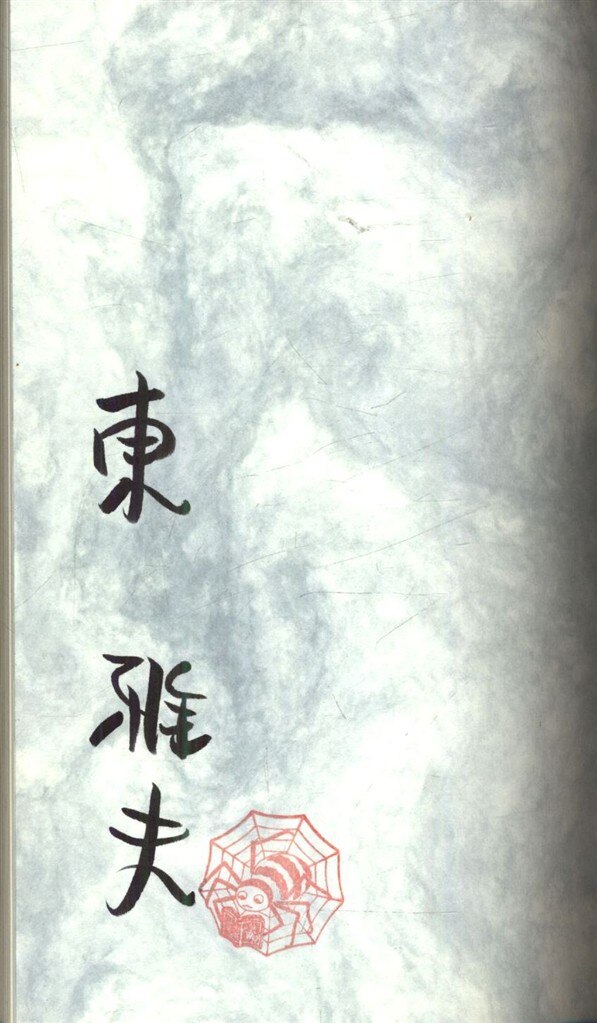 東 雅夫